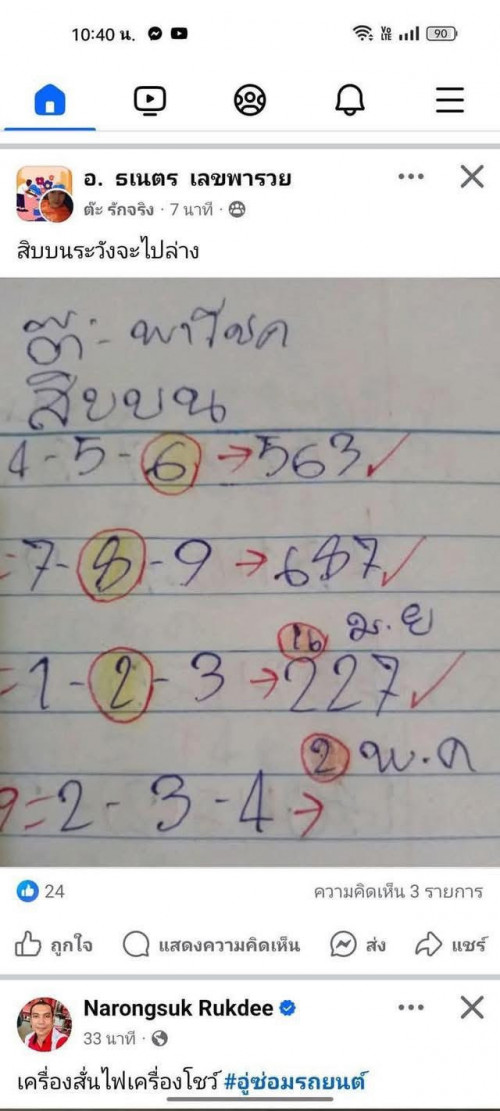 10:40 น.
VoLTE 90
อ. ธเนตร เลขพารวย
ต๊ะ รักจริง · 7 นาที ·
สิบบนระวังจะไปล่าง
ต๊ะ - พาโชค
สิบบน
4 - 5 - 6 → 563 ✓
= 7 - 8 - 9 → 687 ✓
16 ม.ย
= 1 - 2 - 3 → 227 ✓
2 พ.ค
9 = 2 - 3 - 4 →
24
ความคิดเห็น 3 รายการ
ถูกใจ แสดงความคิดเห็น ส่ง แชร์
Narongsuk Rukdee
33 นาที ·
เครื่องสั่นไฟเครื่องโชว์ #อู่ซ่อมรถยนต์